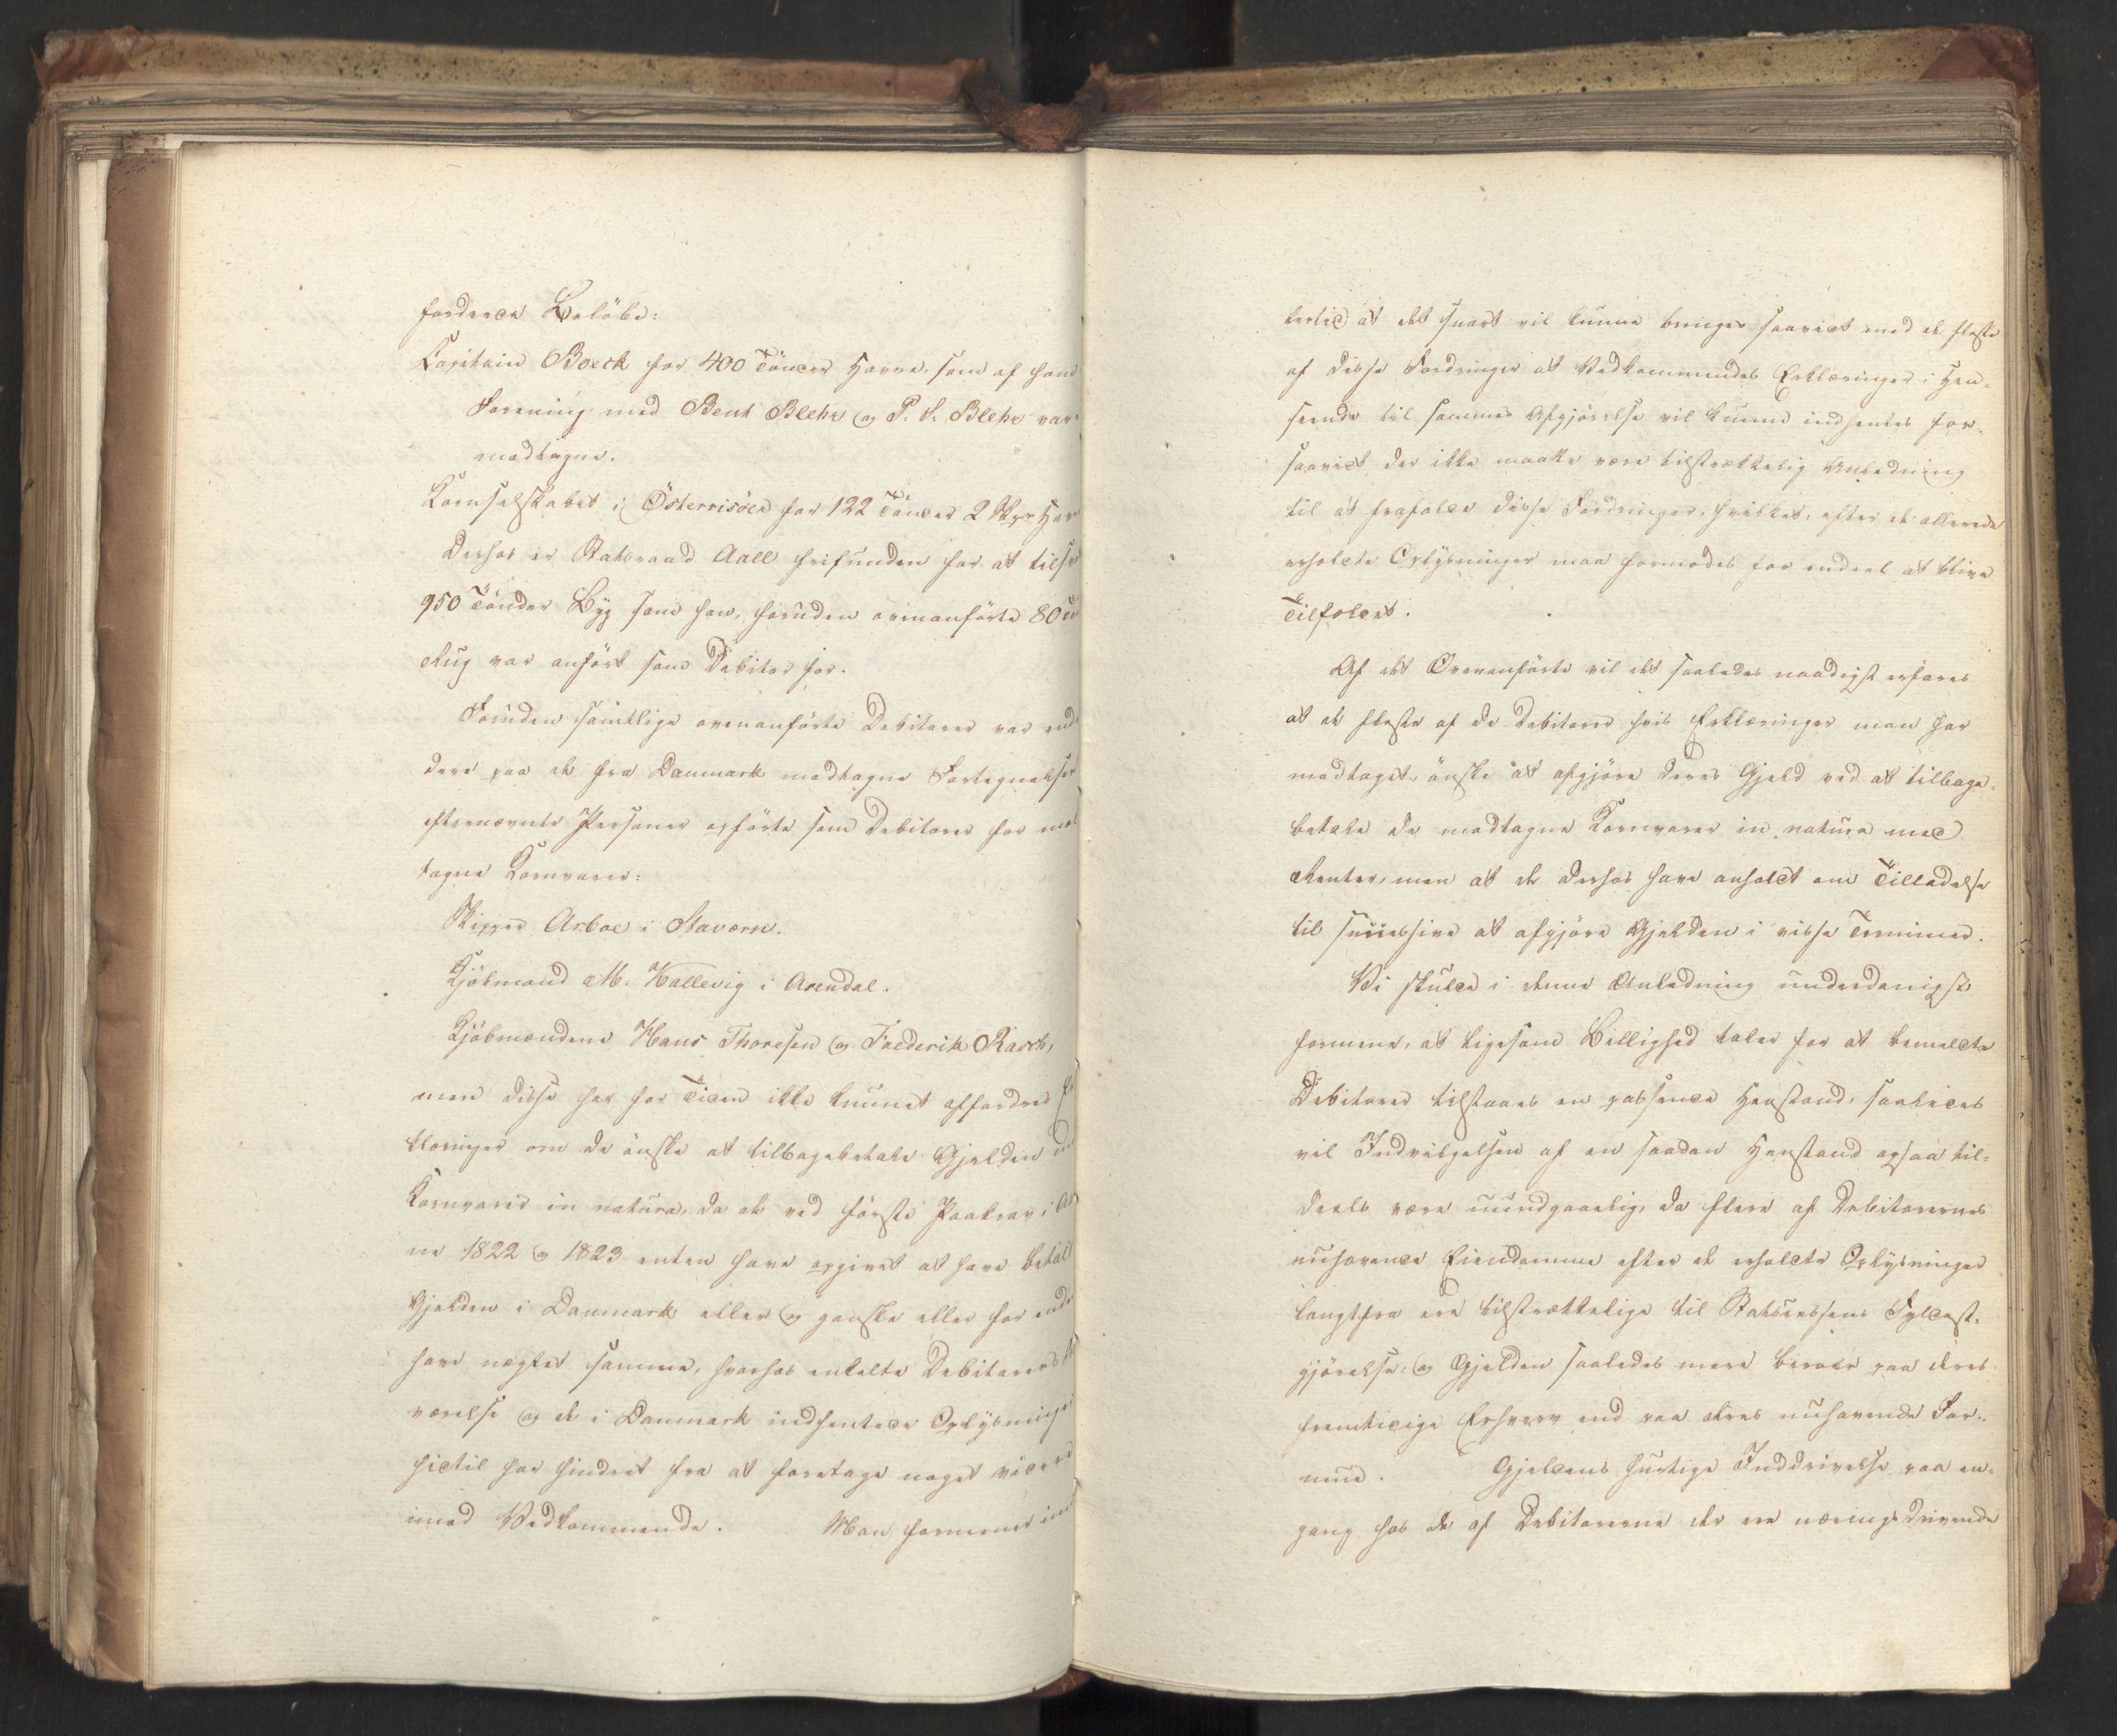 fordrede Beløbe:
Capitain Boeck for 400 Tönder Havre, som af ham
Forening med Bent Blehr og P. S. Blehr var
modtagne.
Kornselskabet i Österrisöer for 122 Tönder 2 Skpr Hav
Derhos er Statsraad Aall frifunden for at tilsv
950 Tönder Byg som han, foruden ovenanförte 80 Tö
Rug var anfört som Debitor for.
Foruden samtlige ovenanförte Debitorer var end
dere paa de fra Danmark modtagne Fortegnelser
efternævnte Personer opförte som Debitorer for mod
tagne Kornvarer:
Skipper Arboe i Stavern.
Kjöbmand M. Kallevig i Arendal.
Kjöbmændene Hans Thoresen og Frederik Rasch,
men disse har for Tiden ikke kunnet affordres
klæringer om de önske at tilbagebetale Gjelden
Kornvarer in natura, da de ved förste Paakrav i Aa
ne 1822 og 1823 enten have opgivet at have betal
Gjelden i Danmark eller og ganske eller for ende
have nægtet samme, hvorhos enkelte Debitorers
værelse og de i Danmark indhentede Oplysninger
hidtil har hindret fra at foretage noget videre
imod Vedkommende. Man formener im
lertid at det snart vil kunne bringes saavidt med de fleste
af disse Fordringer at Vedkommendes Erklæringer i Hen-
seende til sammes Afgjörelse vil kunne indhentes for-
saavidt der ikke maatte være tilstrækkelig Anledning
til at frafalde disse Fordringer, hvilket, efter de allerede
erholdte Oplysninger maa formodes for endeel at blive
Tilfældet.
Af det Ovenanförte vil det saaledes naadigst erfares
at de fleste af de Debitorer hvis Erklæringer man har
modtaget, önske at afgjöre deres Gjeld ved at tilbage-
betale de modtagne Kornvarer in natura med
Renter, men at de derhos have anholdt om Tilladelse
til successive at afgjöre Gjelden i visse Terminer.
Vi skulde i denne Anledning underdanigst
formene, at ligesom Billighed taler for at bemeldte
Debitorer tilstaaes en passende Henstand, saaledes
vil Indvilgelsen af en saadan Henstand ogsaa til-
deels være uundgaaelig, da flere af Debitorernes
nuhavende Eiendomme efter de erholdte Oplysninger
langtfra ere tilstrækkelige til Statscassens Fyldest-
gjörelse, og Gjelden saaledes mere beroer paa deres
fremtidige Erhverv end paa deres nuhavende For-
mue. Gjeldens hurtige Inddrivelse paa en-
gang hos de af Debitorerne der ere næringsdrivende